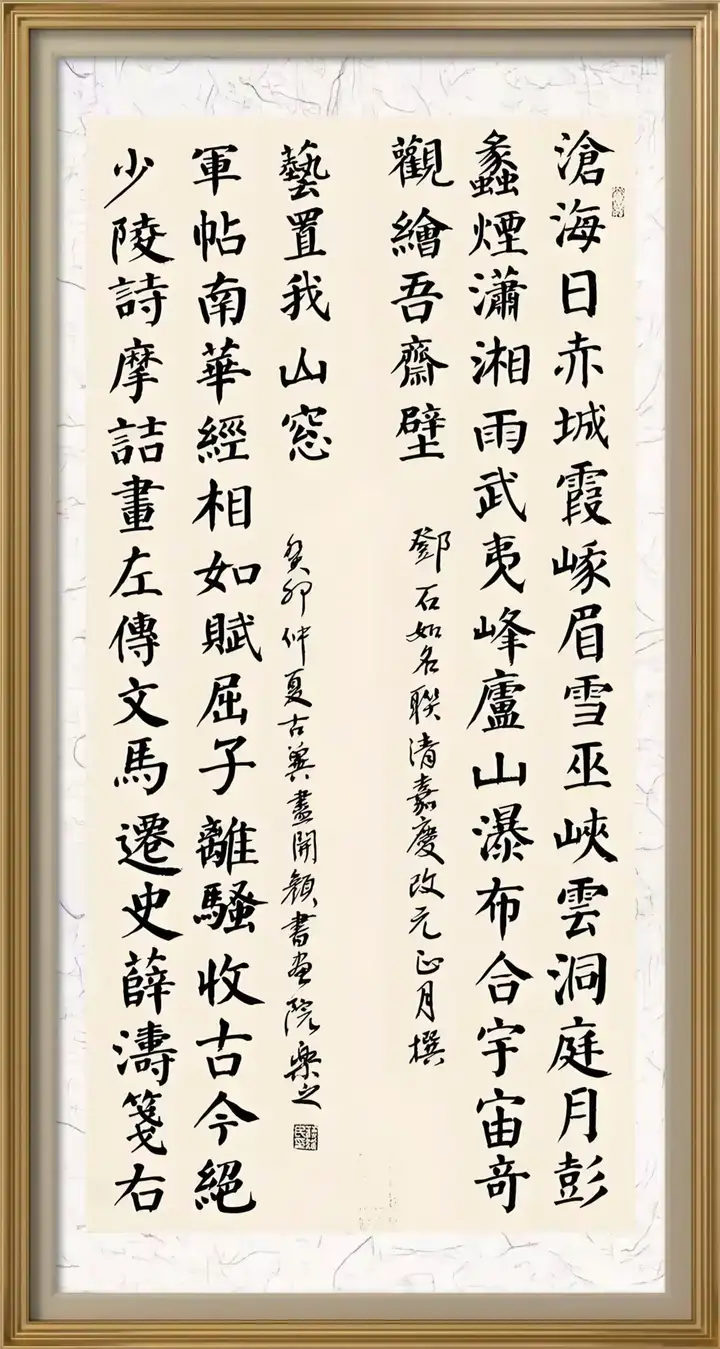 滄海日赤城霞峨眉雪巫峽雲洞庭月彭
蠡煙瀟湘雨武夷峰廬山瀑布合宇宙奇
觀繪吾齋壁
鄧石如名聯清嘉慶改元正月撰
少陵詩摩詰畫左傳文馬遷史薛濤箋右
軍帖南華經相如賦屈子離騷收古今絕
藝置我山窓
癸卯仲夏古冀盡開顏書畫院樂之